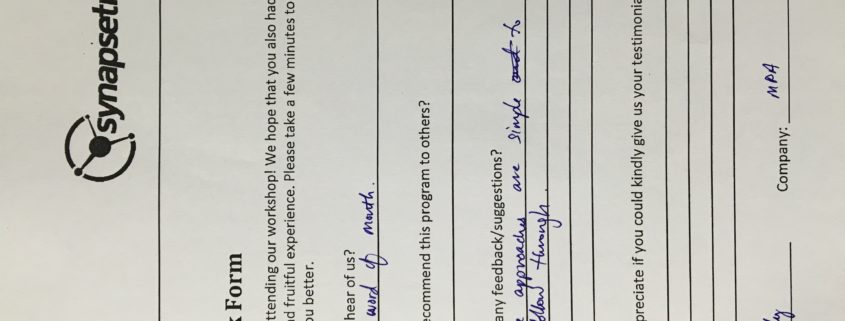 synapset
k Form
ttending our workshop! We hope that you also had
nd fruitful experience. Please take a few minutes to
ou better.
hear of us?
word of mouth.
ecommend this program to others?
any feedback/suggestions?
e approaches are simple to
follow through.
preciate if you could kindly give us your testimonia
Company: MDA